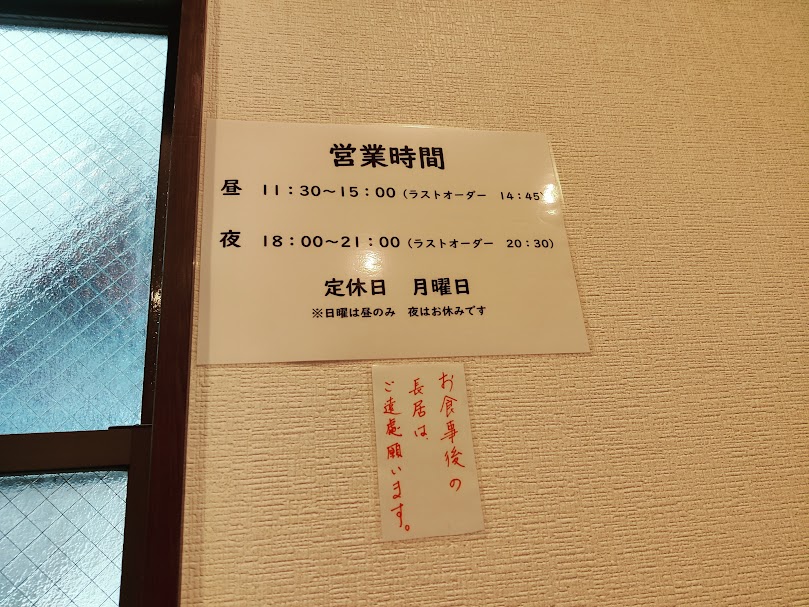 営業時間
昼 11：30～15：00（ラストオーダー 14：45）
夜 18：00～21：00（ラストオーダー 20：30）
定休日 月曜日
※日曜は昼のみ 夜はお休みです
お食事後の
長居は、
ご遠慮願います。